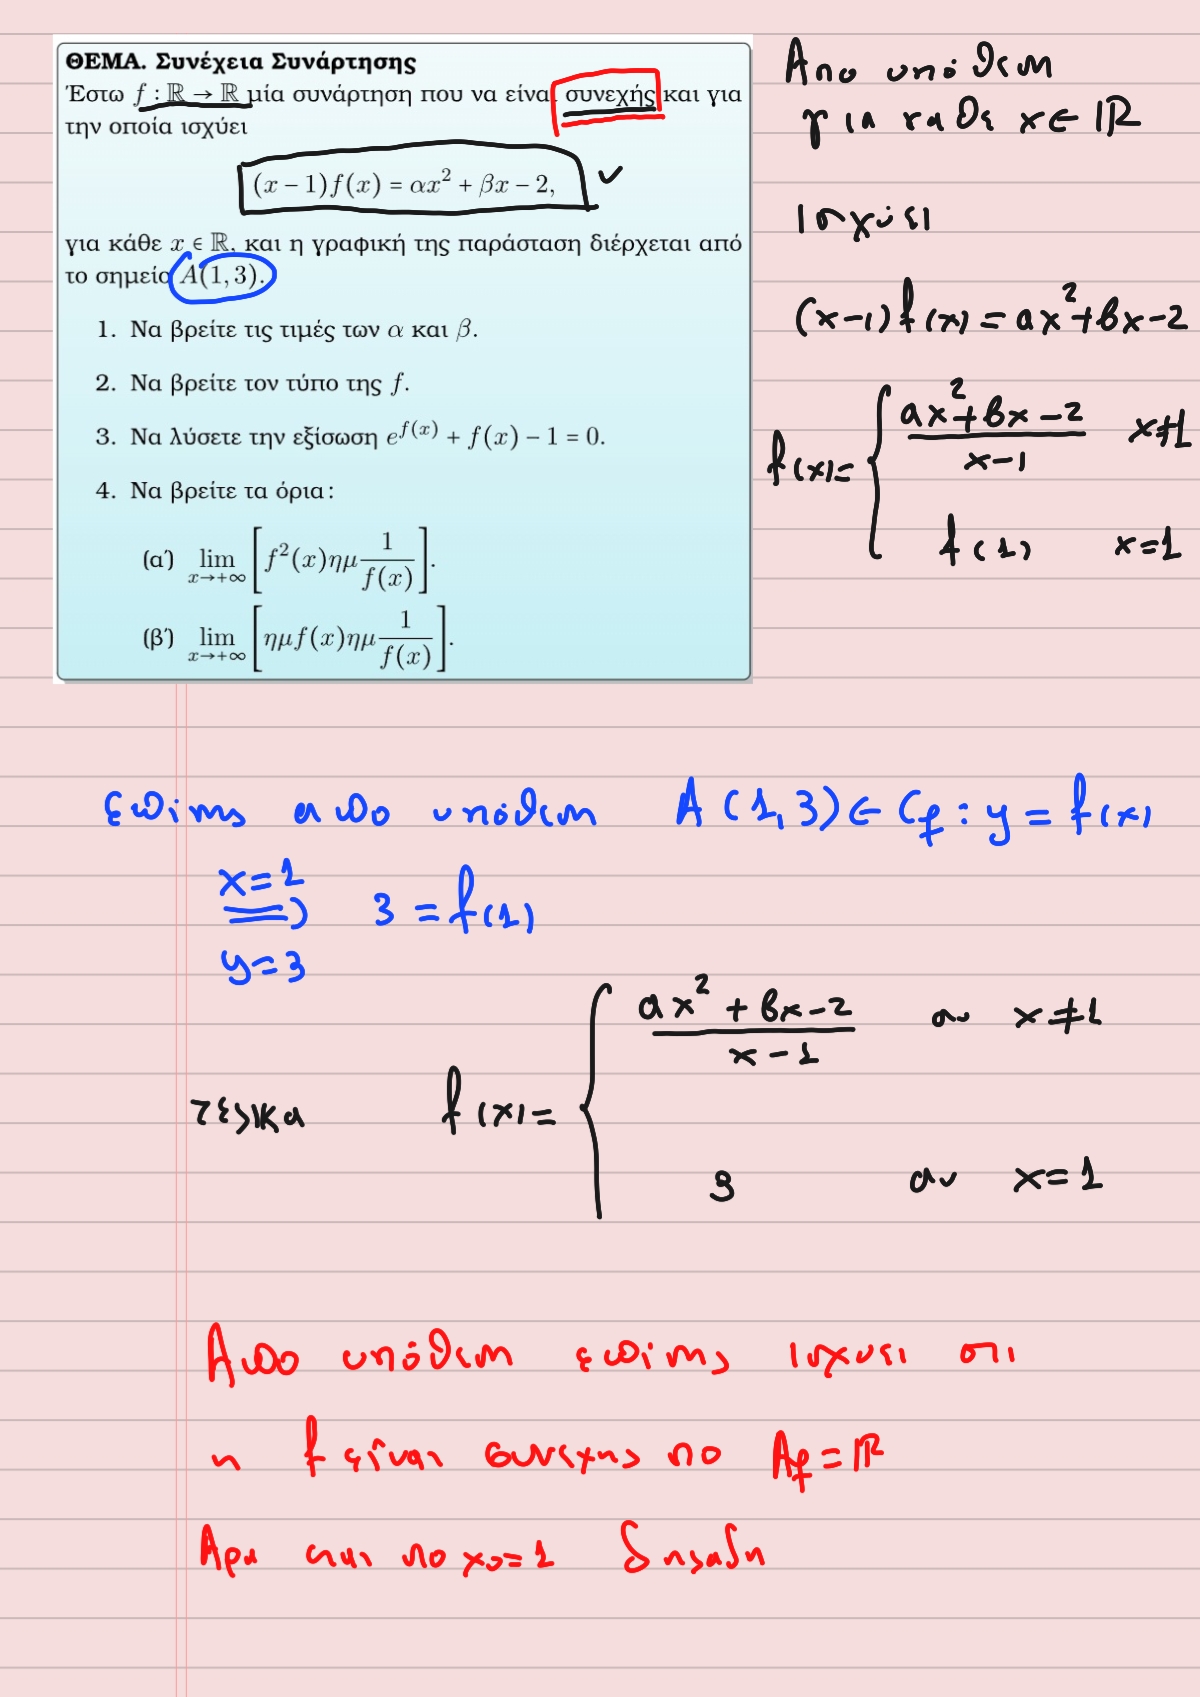 ΘΕΜΑ. Συνέχεια Συνάρτησης
Έστω f : ℝ → ℝ μία συνάρτηση που να είναι συνεχής και για
την οποία ισχύει
(x − 1)f(x) = αx² + βx − 2,
για κάθε x ∈ ℝ, και η γραφική της παράσταση διέρχεται από
το σημείο A(1, 3).
1. Να βρείτε τις τιμές των α και β.
2. Να βρείτε τον τύπο της f.
3. Να λύσετε την εξίσωση e^{f(x)} + f(x) − 1 = 0.
4. Να βρείτε τα όρια:
(α΄) lim_{x→+∞} [f²(x)ημ 1/f(x)].
(β΄) lim_{x→+∞} [ημf(x)ημ 1/f(x)].
Απο υπόθεση
για καθε x ∈ ℝ
ισχύει
(x−1)f(x) = αx²+βx−2
f(x) = { (αx²+βx−2)/(x−1) x≠1
f(1) x=1
Επίσης απο υπόθεση A(1,3) ∈ Cf : y = f(x)
x=1
⇒ 3 = f(1)
y=3
τελικα f(x) = { (αx²+βx−2)/(x−1) αν x≠1
3 αν x=1
Απο υπόθεση επίσης ισχυει οτι
η f είναι συνεχης στο Af = ℝ
Αρα και στο x₀=1 δηλαδη